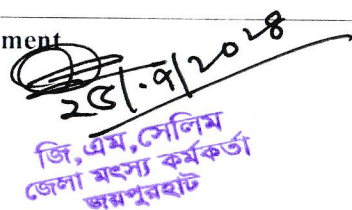 ment
জি,এম,সেলিম
জেলা মৎস্য কর্মকর্তা
জয়পুরহাট